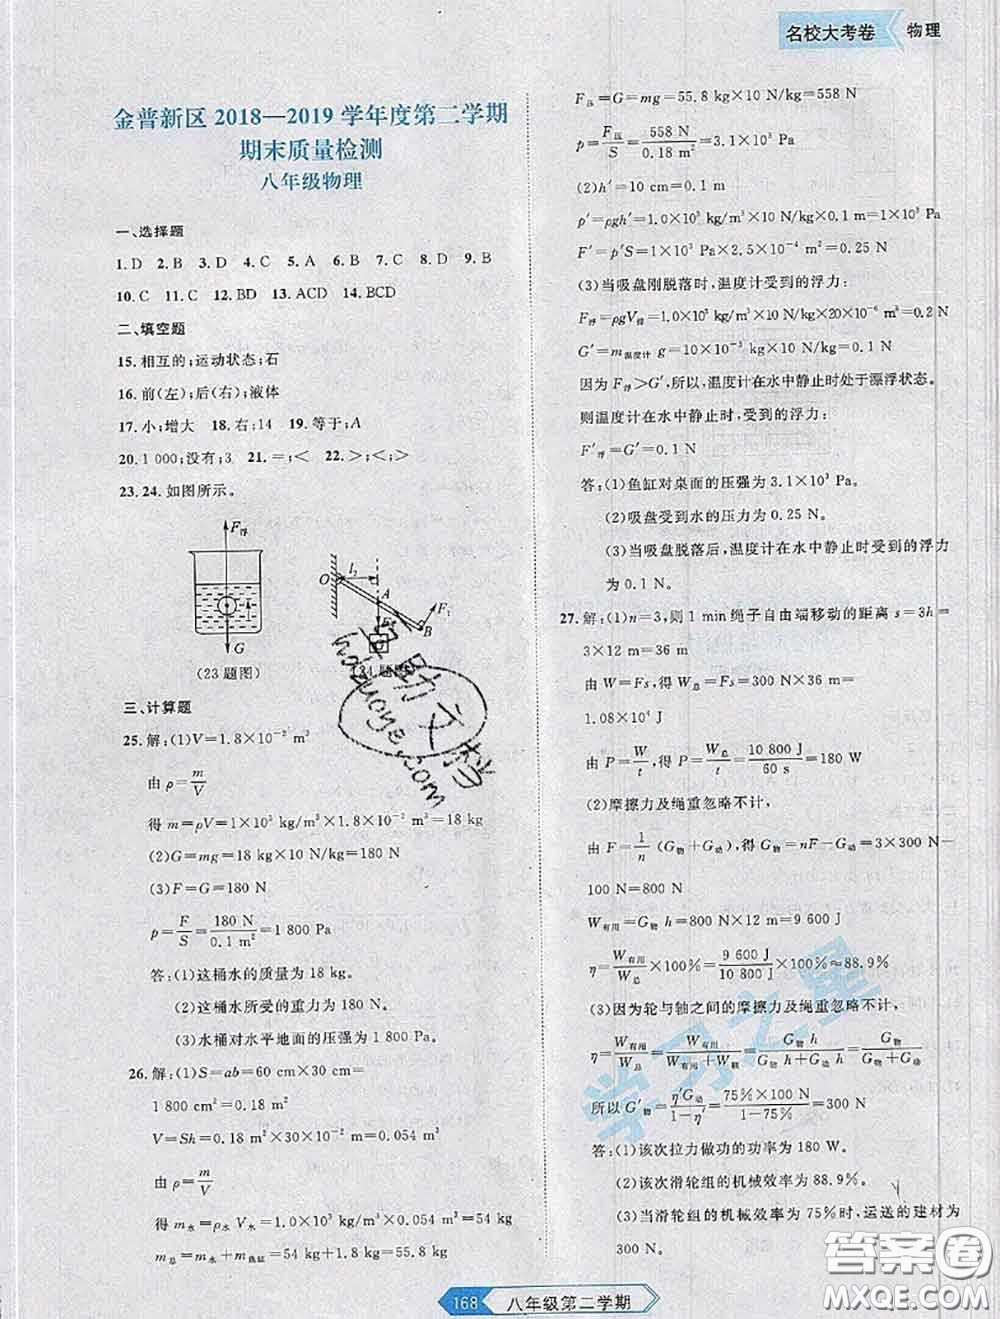 名校大考卷 物理
金普新区 2018—2019 学年度第二学期
期末质量检测
八年级物理
一、选择题
1.D 2.B 3.D 4.C 5.A 6.B 7.C 8.D 9.B
10.C 11.C 12.BD 13.ACD 14.BCD
二、填空题
15.相互的;运动状态;石
16.前(左);后(右);液体
17.小;增大 18.右;14 19.等于;A
20.1 000;没有;3 21.=;< 22.>;<
23.24.如图所示。
F浮
G
(23题图)
O
l₂
A
F₁
B
三、计算题
25.解:(1)V=1.8×10⁻² m³
由 ρ=m/V
得 m=ρV=1×10³ kg/m³×1.8×10⁻² m³=18 kg
(2)G=mg=18 kg×10 N/kg=180 N
(3)F=G=180 N
p=F/S=180 N/0.1 m²=1 800 Pa
答:(1)这桶水的质量为 18 kg。
(2)这桶水所受的重力为 180 N。
(3)水桶对水平地面的压强为 1 800 Pa。
26.解:(1)S=ab=60 cm×30 cm=
1 800 cm²=0.18 m²
V=Sh=0.18 m²×30×10⁻² m=0.054 m³
由 ρ=m/V
得 m水=ρ水 V水=1.0×10³ kg/m³×0.054 m³=54 kg
m总=m水+m鱼缸=54 kg+1.8 kg=55.8 kg
F压=G=mg=55.8 kg×10 N/kg=558 N
p=F压/S=558 N/0.18 m²=3.1×10³ Pa
(2)h′=10 cm=0.1 m
p′=ρgh′=1.0×10³ kg/m³×10 N/kg×0.1 m=1×10³ Pa
F′=p′S=1×10³ Pa×2.5×10⁻⁴ m²=0.25 N
(3)当吸盘刚脱落时,温度计受到的浮力:
F浮=ρgV排=1.0×10³ kg/m³×10 N/kg×20×10⁻⁶ m³=0.2 N
G′=m温度计 g=10×10⁻³ kg×10 N/kg=0.1 N
因为 F浮>G′,所以,温度计在水中静止时处于漂浮状态。
则温度计在水中静止时,受到的浮力:
F′浮=G′=0.1 N
答:(1)鱼缸对桌面的压强为 3.1×10³ Pa。
(2)吸盘受到水的压力为 0.25 N。
(3)当吸盘脱落后,温度计在水中静止时受到的浮力
为 0.1 N。
27.解:(1)n=3,则 1 min 绳子自由端移动的距离 s=3h=
3×12 m=36 m
由 W=Fs,得 W总=Fs=300 N×36 m=
1.08×10⁴ J
由 P=W/t,得 P=W总/t=10 800 J/60 s=180 W
(2)摩擦力及绳重忽略不计,
由 F=1/n(G物+G动),得 G物=nF-G动=3×300 N-
100 N=800 N
W有用=G物 h=800 N×12 m=9 600 J
η=W有用/W总×100%=9 600 J/10 800 J×100%≈88.9%
(3)因为轮与轴之间的摩擦力及绳重忽略不计,
η=W有用/W总=W有用/(W有用+W额)=G物 h/(G物 h+G动 h)=G物/(G物+G动)
所以 G′物=η′G动/(1-η′)=75%×100 N/(1-75%)=300 N
答:(1)该次拉力做功的功率为 180 W。
(2)该次滑轮组的机械效率为 88.9%。
(3)当滑轮组的机械效率为75%时,运送的建材为
300 N。
作业帮助文档
haizuoye.com
学习之星
168 八年级第二学期
答案圈
MXQE.COM